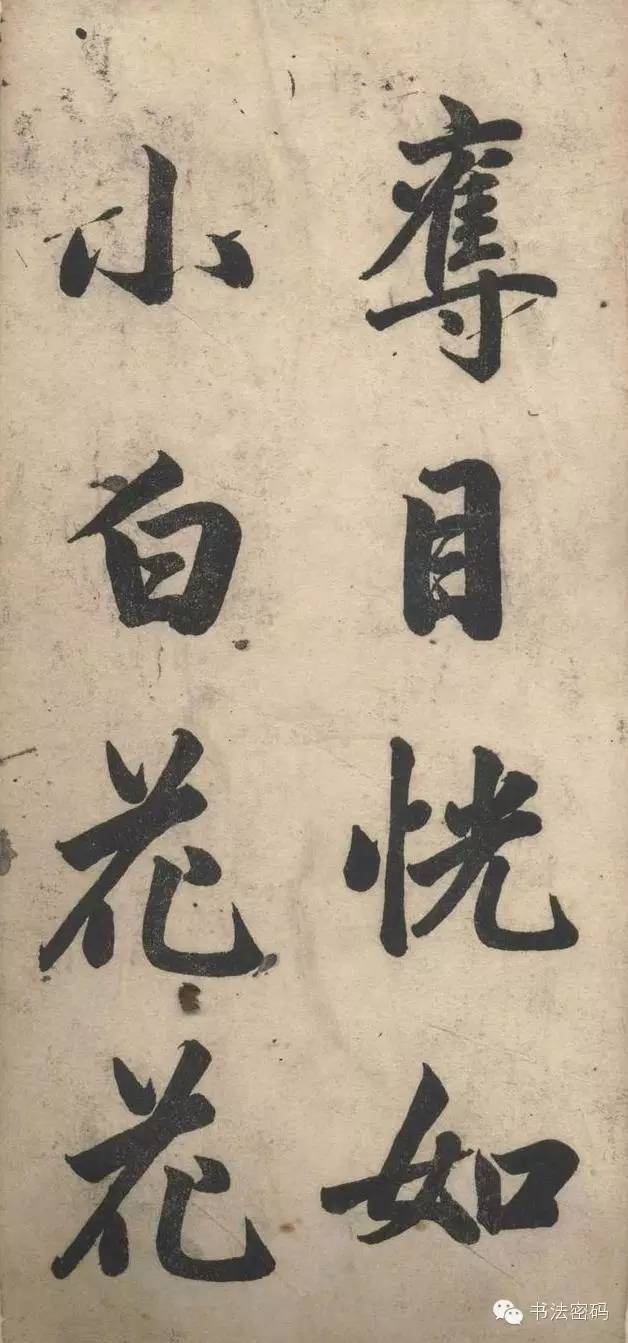 奪目恍如
小白花花
书法密码